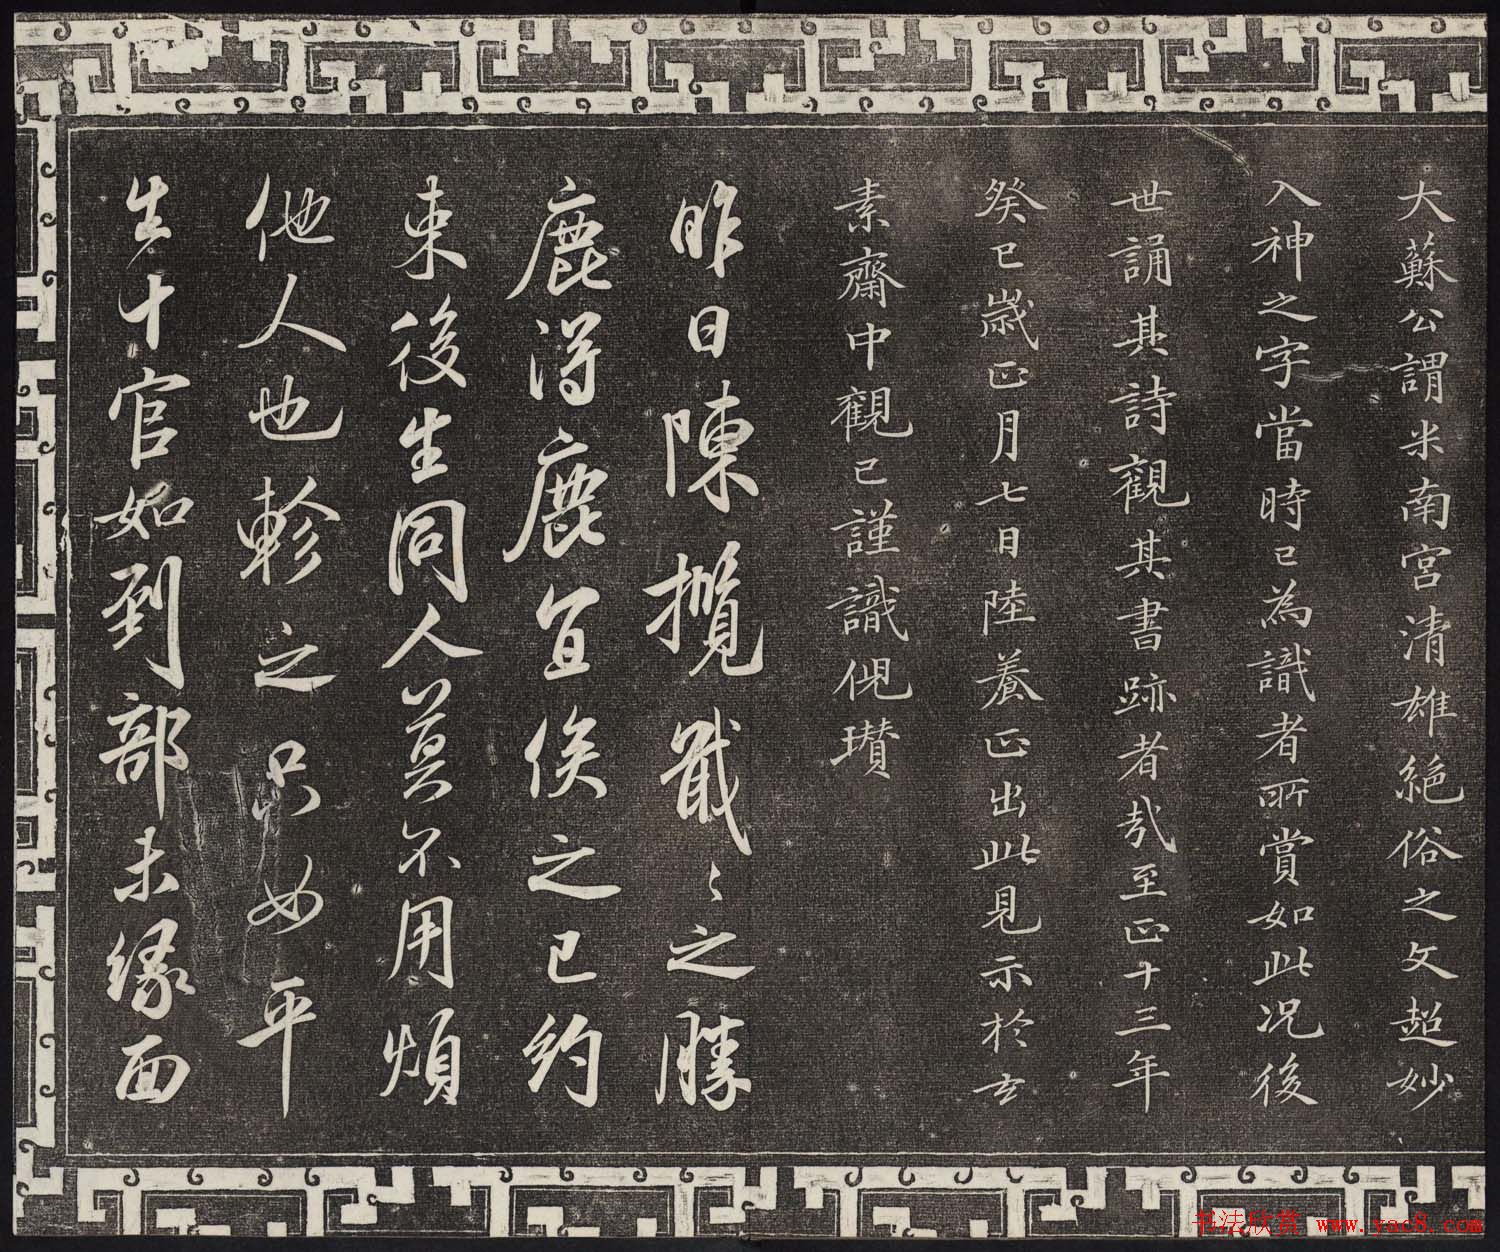 大蘇公謂米南宮清雄絕俗之文超妙
入神之字當時已為識者所賞如此况後
世誦其詩觀其書跡者哉至正十三年
癸巳歲正月七日陸養正出此見示於玄
素齋中觀已謹識倪瓚
昨日陳攬戢〻之勝
鹿得鹿宜俟之已約
束後生同人莫不用煩
他人也軫之只如平
生十官如到部未緣面
书法欣赏 www.yac8.com